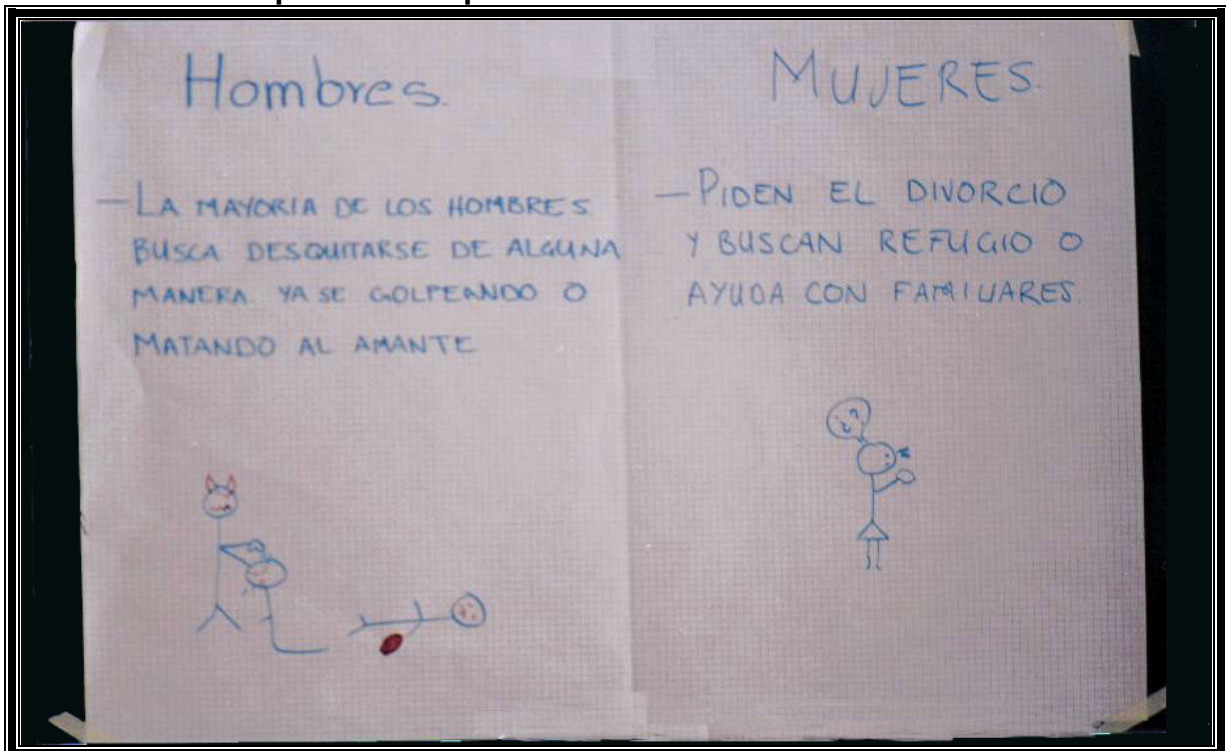 Hombres.
- LA MAYORIA DE LOS HOMBRES
BUSCA DESQUITARSE DE ALGUNA
MANERA YA SE GOLPEANDO O
MATANDO AL AMANTE
MUJERES.
- PIDEN EL DIVORCIO
Y BUSCAN REFUGIO O
AYUDA CON FAMILIARES.